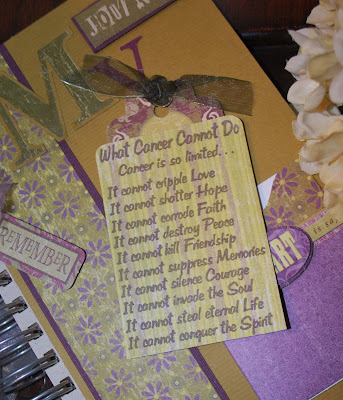 MY
What Cancer Cannot Do
Cancer is so limited...
It cannot cripple Love
It cannot shatter Hope
It cannot corrode Faith
It cannot destroy Peace
It cannot kill Friendship
It cannot suppress Memories
It cannot silence Courage
It cannot invade the Soul
It cannot steal eternal Life
It cannot conquer the Spirit
REMEMBER